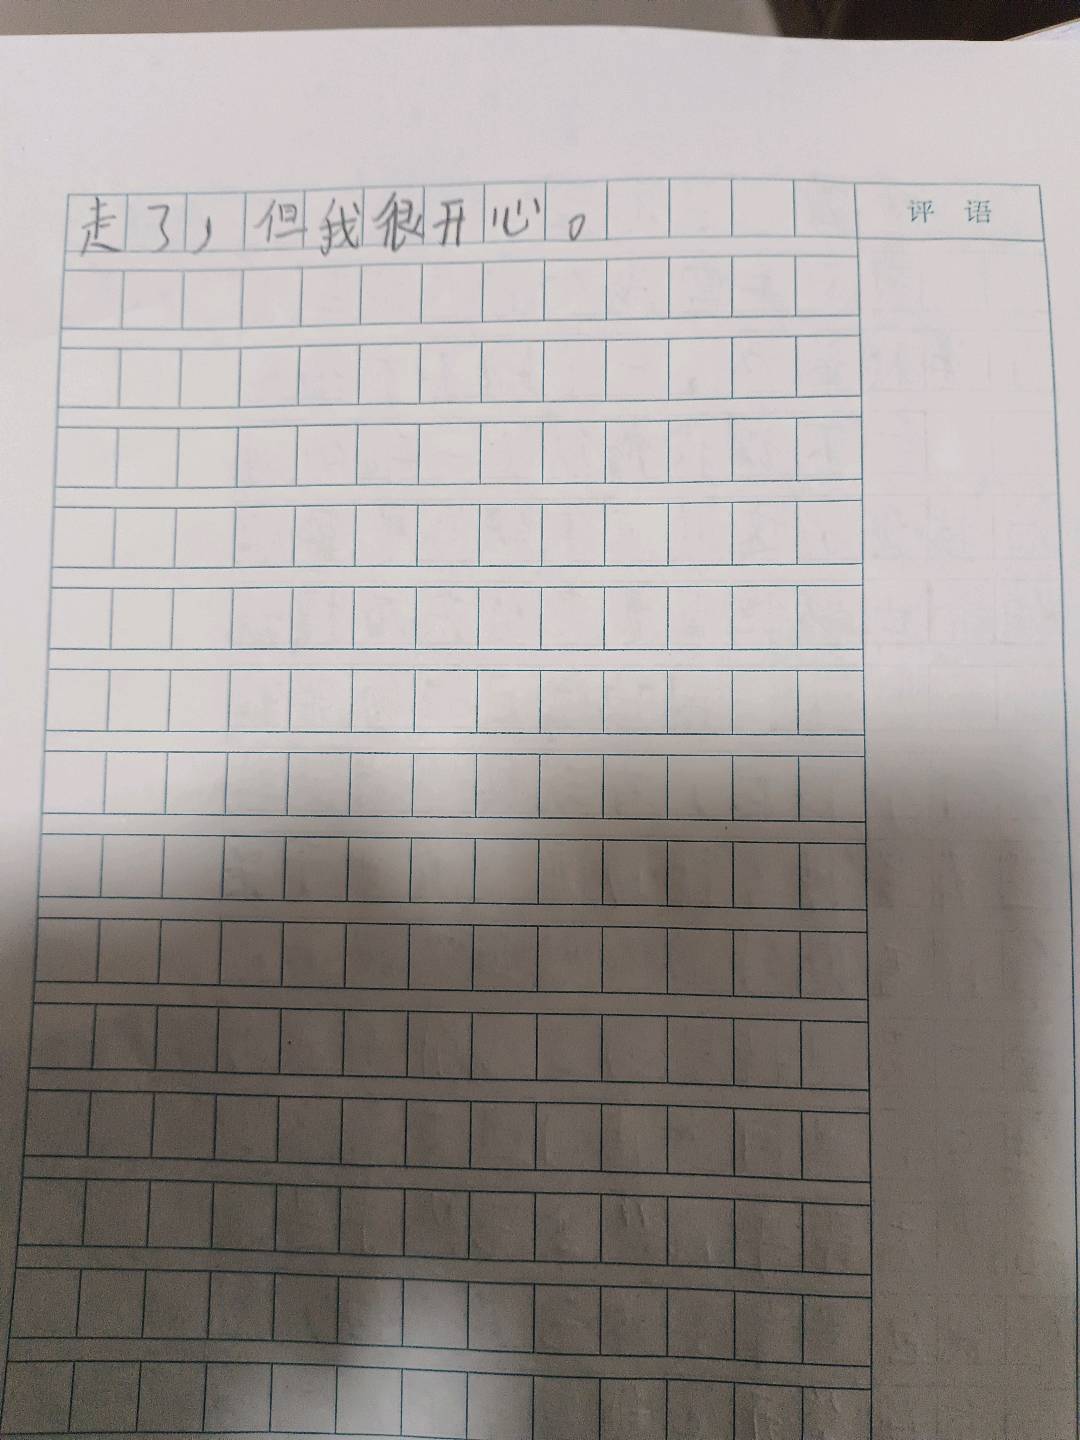 走了，但我很开心。
评语